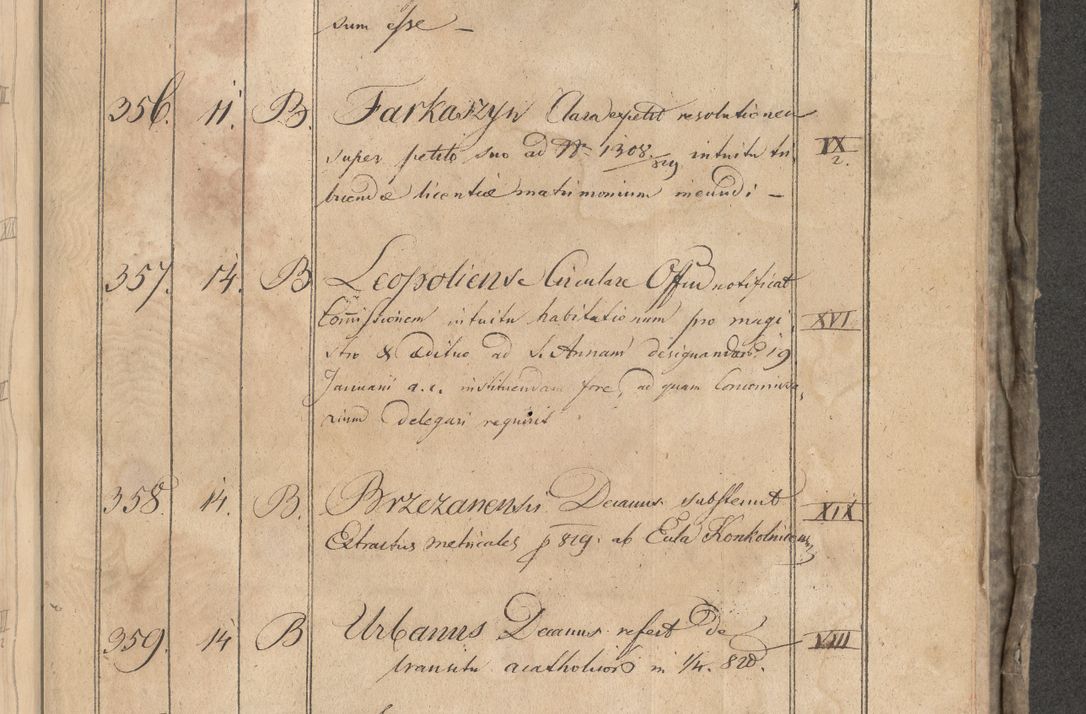 sum esse —
356. 11. B. Farkaszyn Clara expetit resolutionem
super petito suo ad Nr 1308/819 intuitu tri IX
2.
buendæ licentiæ matrimonium ineundi —
357. 14. B Leopoliense Circulare Offiu notificat
Com̄issionem intuitu habitationum pro magi XVI
stro & ædituo ad S. Annam designandar 19
Januarii a.c. instituendam fore, ad quam Concomissa,
rium delegari requirit
358 14. B. Brzezanensis Decanus substernit XIX
Extractus metricales p 819. ab Eccla Konkolnicensi
359. 14 B Urbanus Decanus refert De VIII
transitu acatholicor in 1/4. 820.